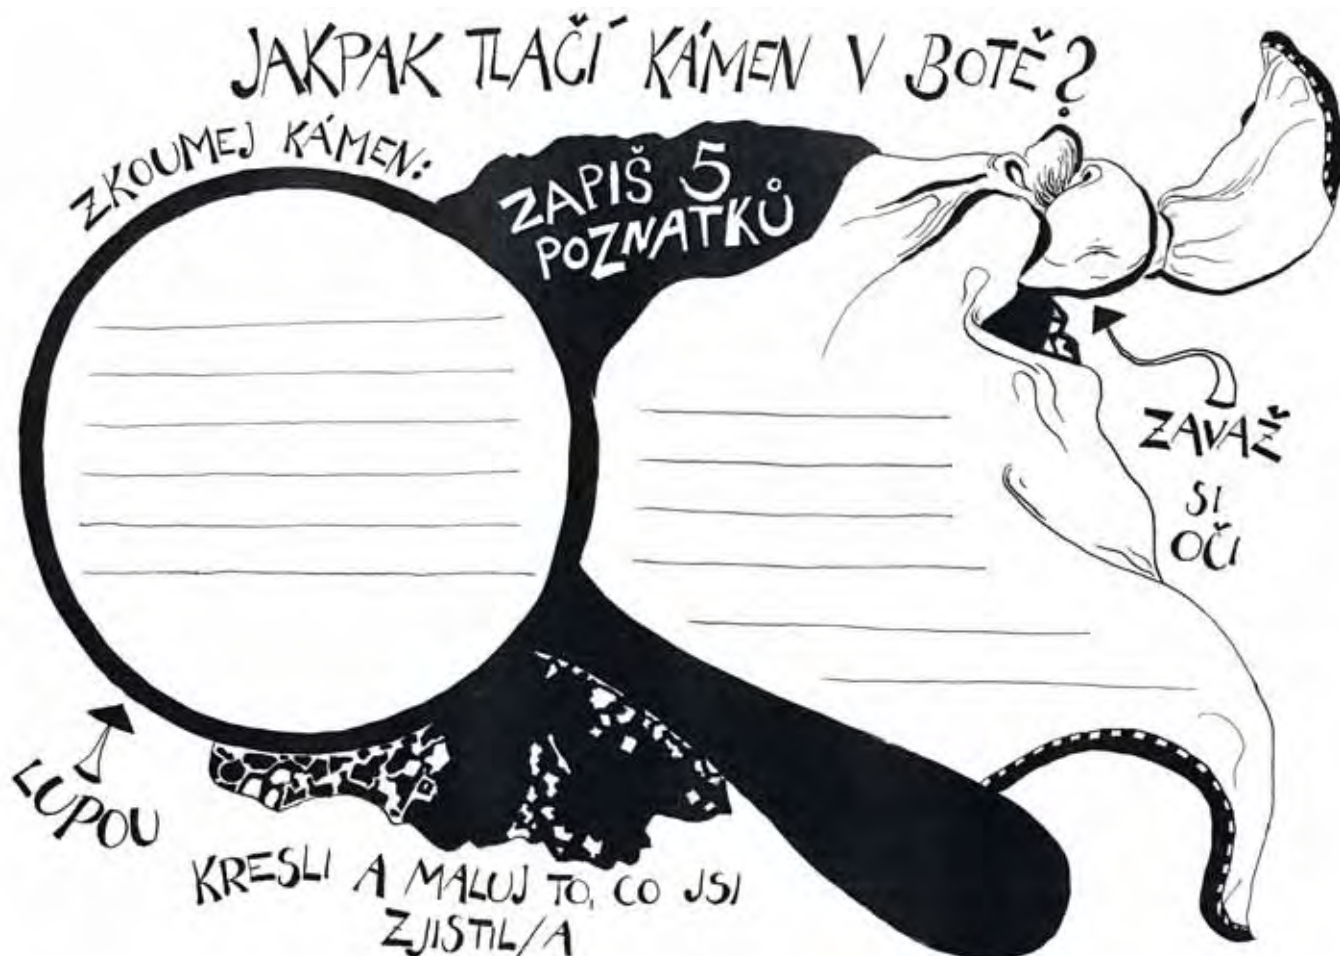 JAKPAK TLAČÍ KÁMEN V BOTĚ?
ZKOUMEJ KÁMEN:
ZAPIŠ 5
POZNATKŮ
ZAVAŽ
SI
OČI
LUPOU
KRESLI A MALUJ TO, CO JSI
ZJISTIL/A